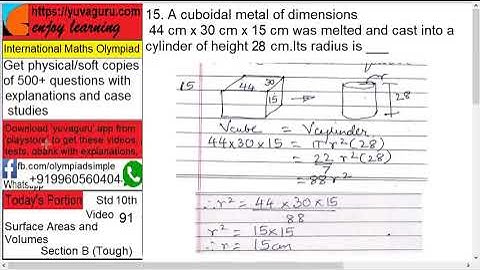 https://yuvaguru.com
enjoy learning
International Maths Olympiad
Get physical/soft copies
of 500+ questions with
explanations and case
studies
Download 'yuvaguru' app from
'playstore' to get these videos,
tests, qbank with explanations.
fb.com/olympiadsimple
+919960560404
Whatsapp
Today's Portion Std 10th
Video 91
Surface Areas and
Volumes
Section B (Tough)
15. A cuboidal metal of dimensions
44 cm x 30 cm x 15 cm was melted and cast into a
cylinder of height 28 cm.Its radius is ___
15
44 30 15
r 28
Vcube = Vcylinder
44x30x15 = π r²(28)
= 22/7 r²(28)
= 88r²
∴ r² = 44 x 30 x 15 / 88
r² = 15 x 15
∴ r = 15cm